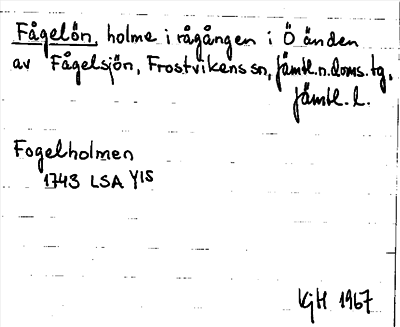 Fågelön, holme i rågången i Ö änden
av Fågelsjön, Frostvikens sn, Jämtl. n. doms. tg,
Jämtl. l.
Fogelholmen
1743 LSA Y15
KgH 1967